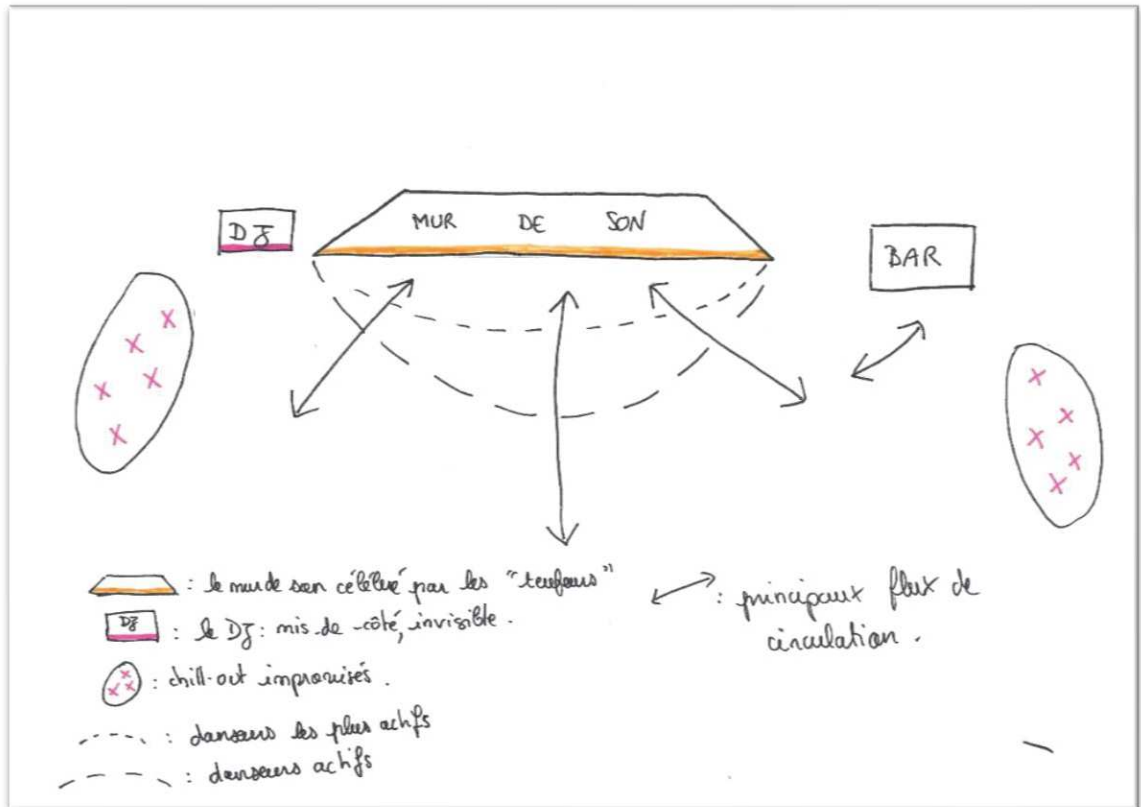 DJ
MUR DE SON
BAR
: le mur de son célébré par les "teufeurs"
DJ : le DJ : mis de côté, invisible.
: chill-out improvisés.
: danseurs les plus actifs
: danseurs actifs
: principaux flux de
circulation.